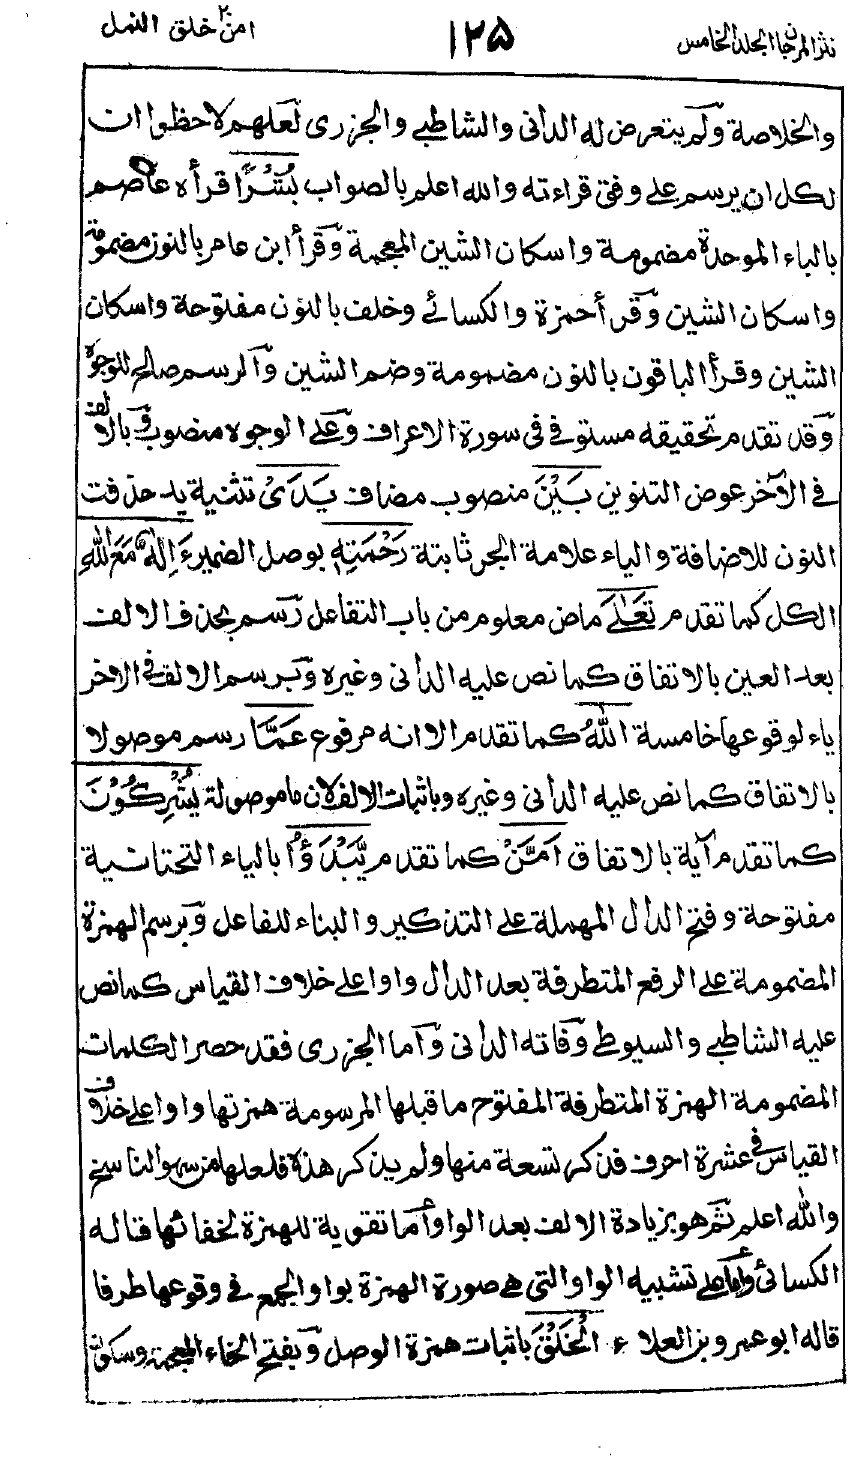 نثر المرجان المجلد الخامس
١٢٥
امن ٢٠ خلق النمل
والخلاصة ولم يتعرض له الدانى والشاطبى والجزرى لعلهم لاحظوا ان
لكل ان يرسم على وفق قراءته والله اعلم بالصواب بُشْرًا قرأه عاصم
بالباء الموحدة مضمومة واسكان الشين المعجمة وقرأ ابن عامر بالنون مضمومة
واسكان الشين وقرأ حمزة والكسائى وخلف بالنون مفتوحة واسكان
الشين وقرأ الباقون بالنون مضمومة وضم الشين والرسم صالح للوجوه
وقد تقدم تحقيقه مستوفى فى سورة الاعراف وعلى الوجوه منصوب وبالالف
فى الآخر عوض التنوين بَيْنَ منصوب مضاف يَدَىْ تثنية يد حذفت
النون للاضافة والياء علامة الجر ثابتة رَحْمَتِهٖ بوصل الضمير ءَاِلٰهٌ مَعَ اللهِ
الكل كما تقدم تَعٰلَى ماض معلوم من باب التفاعل رسم بحذف الالف
بعد العين بالاتفاق كما نص عليه الدانى وغيره وبرسم الالف فى الاخر
ياء لوقوعها خامسة اللهُ كما تقدم الا انه مرفوع عَمَّا رسم موصولا
بالاتفاق كما نص عليه الدانى وغيره وباثبات الالف لان ما موصولة يُشْرِكُوْنَ
كما تقدم آية بالاتفاق اَمَّنْ كما تقدم يَّبْدَؤُا بالياء التحتانية
مفتوحة وفتح الدال المهملة على التذكير والبناء للفاعل وبرسم الهمزة
المضمومة على الرفع المتطرفة بعد الدال واوا على خلاف القياس كما نص
عليه الشاطبى والسيوطى وفاته الدانى واما الجزرى فقد حصر الكلمات
المضمومة الهمزة المتطرفة المفتوح ما قبلها المرسومة همزتها واوا على خلاف
القياس فى عشرة احرف فذكر تسعة منها ولم يذكر هذه فلعلها من سهو الناسخ
والله اعلم ثم هو بزيادة الالف بعد الواو أما تقوية للهمزة لخفائها قاله
الكسائى وأما على تشبيه الواو التى هى صورة الهمزة بواو الجمع فى وقوعها طرفا
قاله ابو عمرو بن العلاء الْخَلْقَ باثبات همزة الوصل وبفتح الخاء المعجمة وسكون